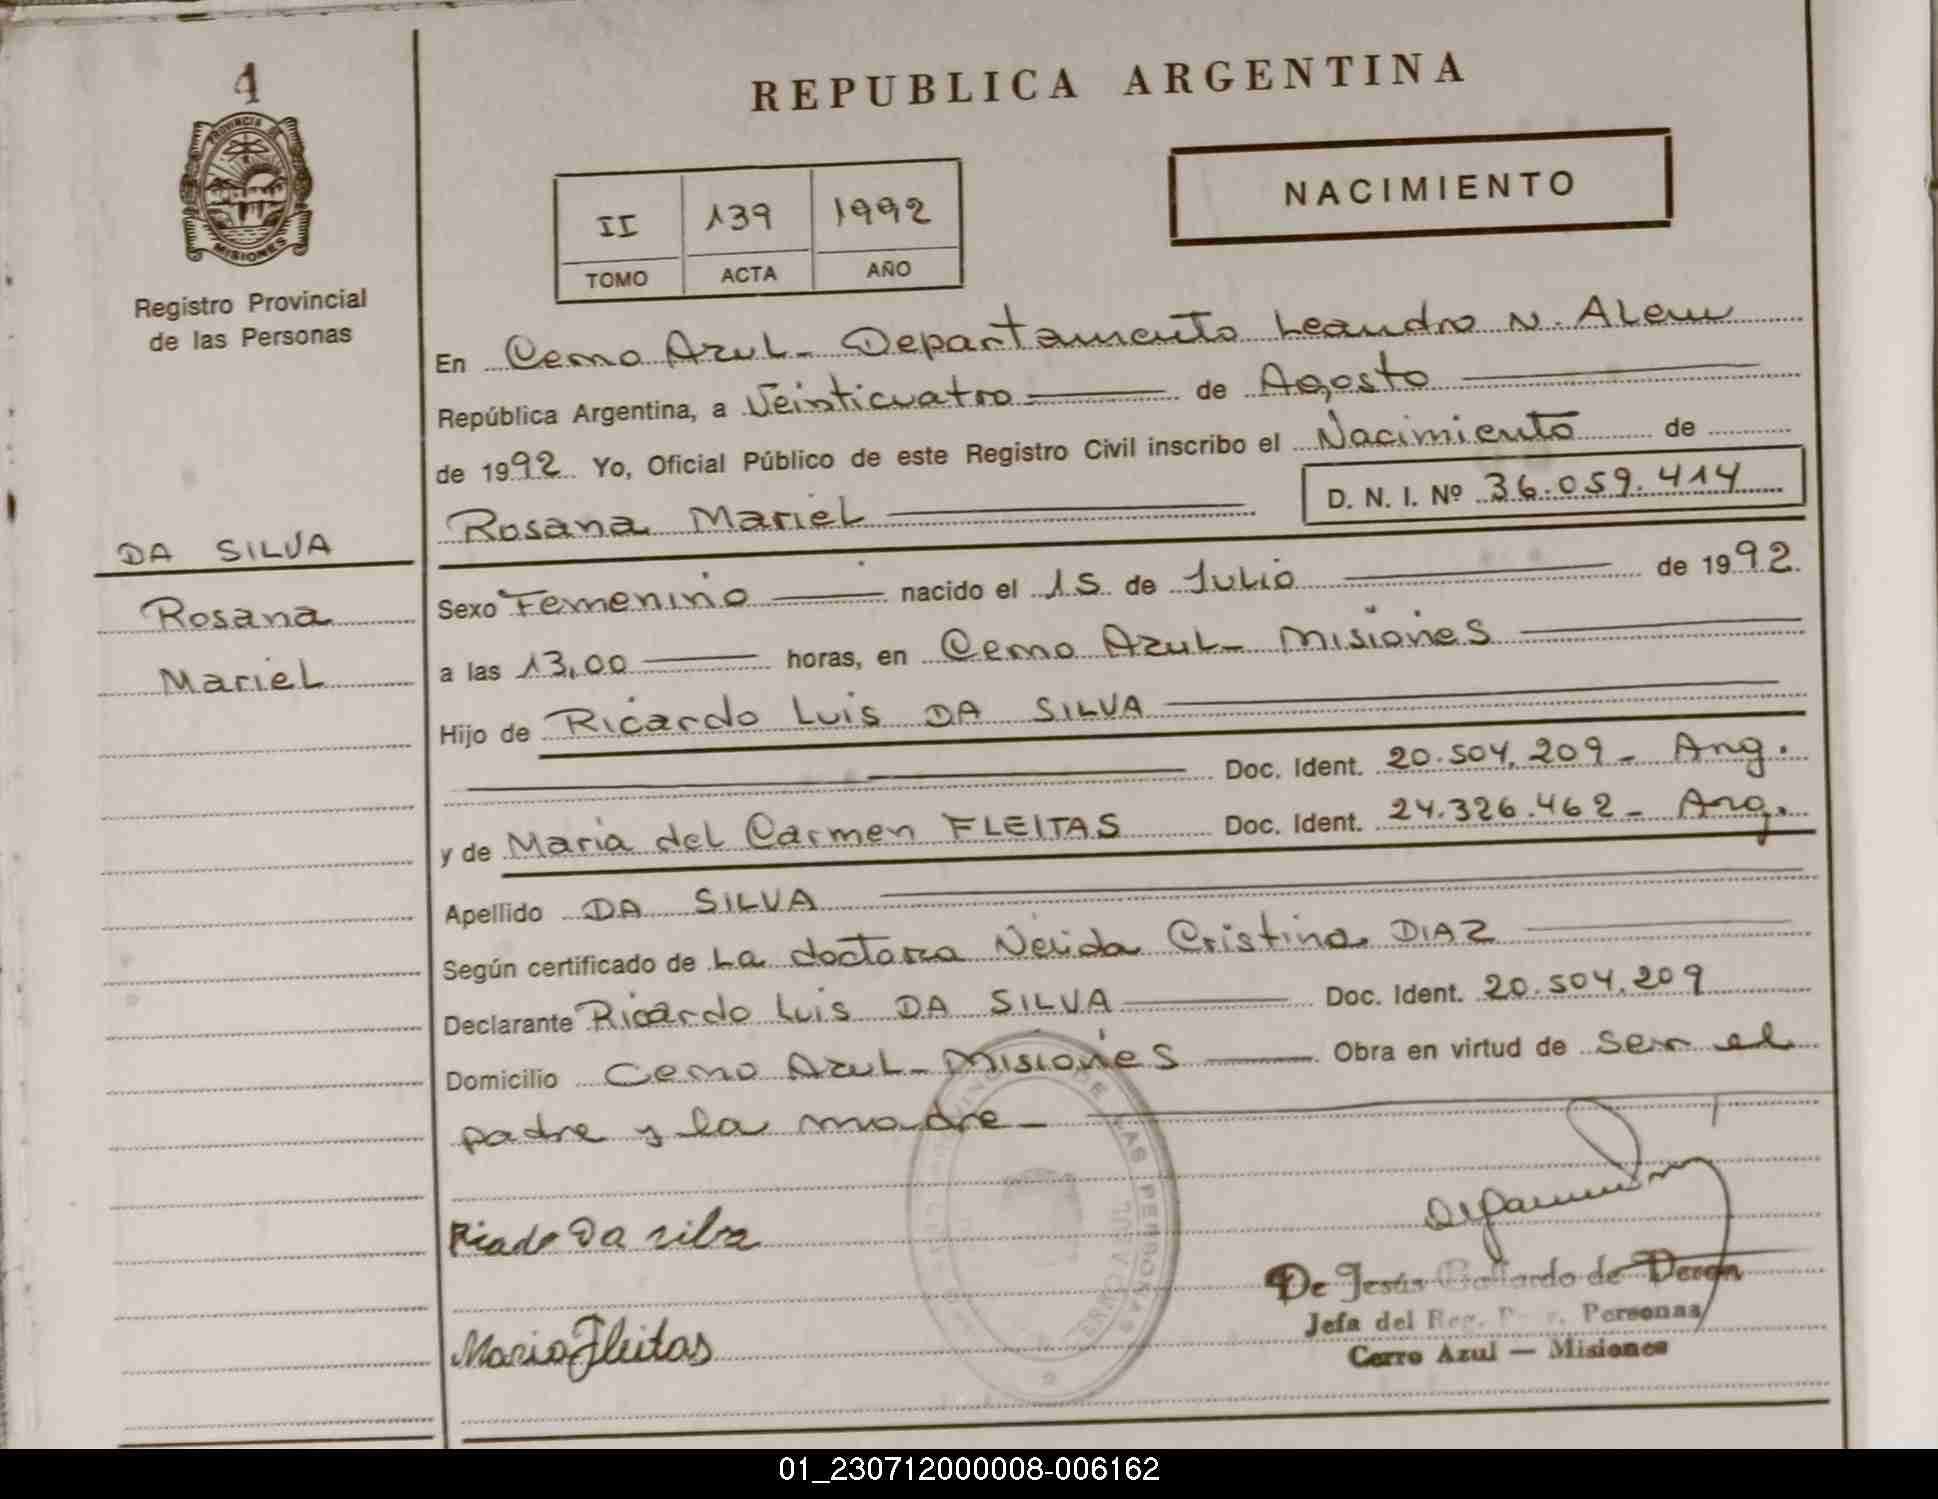 4
PROVINCIA DE
MISIONES
Registro Provincial
de las Personas
DA SILVA
Rosana
Mariel
REPUBLICA ARGENTINA
NACIMIENTO
II 139 1992
TOMO ACTA AÑO
En Cerro Azul - Departamento Leandro N. Alem
República Argentina, a Veinticuatro de Agosto
de 1992 Yo, Oficial Público de este Registro Civil inscribo el Nacimiento de
Rosana Mariel D. N. I. Nº 36.059.414
Sexo Femenino nacido el 15 de Julio de 1992.
a las 13,00 horas, en Cerro Azul - Misiones
Hijo de Ricardo Luis DA SILVA
Doc. Ident. 20.504.209 - Arg.
y de Maria del Carmen FLEITAS Doc. Ident. 24.326.462 - Arg.
Apellido DA SILVA
Según certificado de La doctora Nelida Cristina DIAZ
Declarante Ricardo Luis DA SILVA Doc. Ident. 20.504.209
Domicilio Cerro Azul - Misiones Obra en virtud de ser el
padre y la madre -
DE LAS PERSONAS
CERRO AZUL
Ricardo Da silva
Maria Fleitas
De Jesús Gallardo de Deron
Jefa del Reg. Personas
Cerro Azul — Misiones
01_230712000008-006162